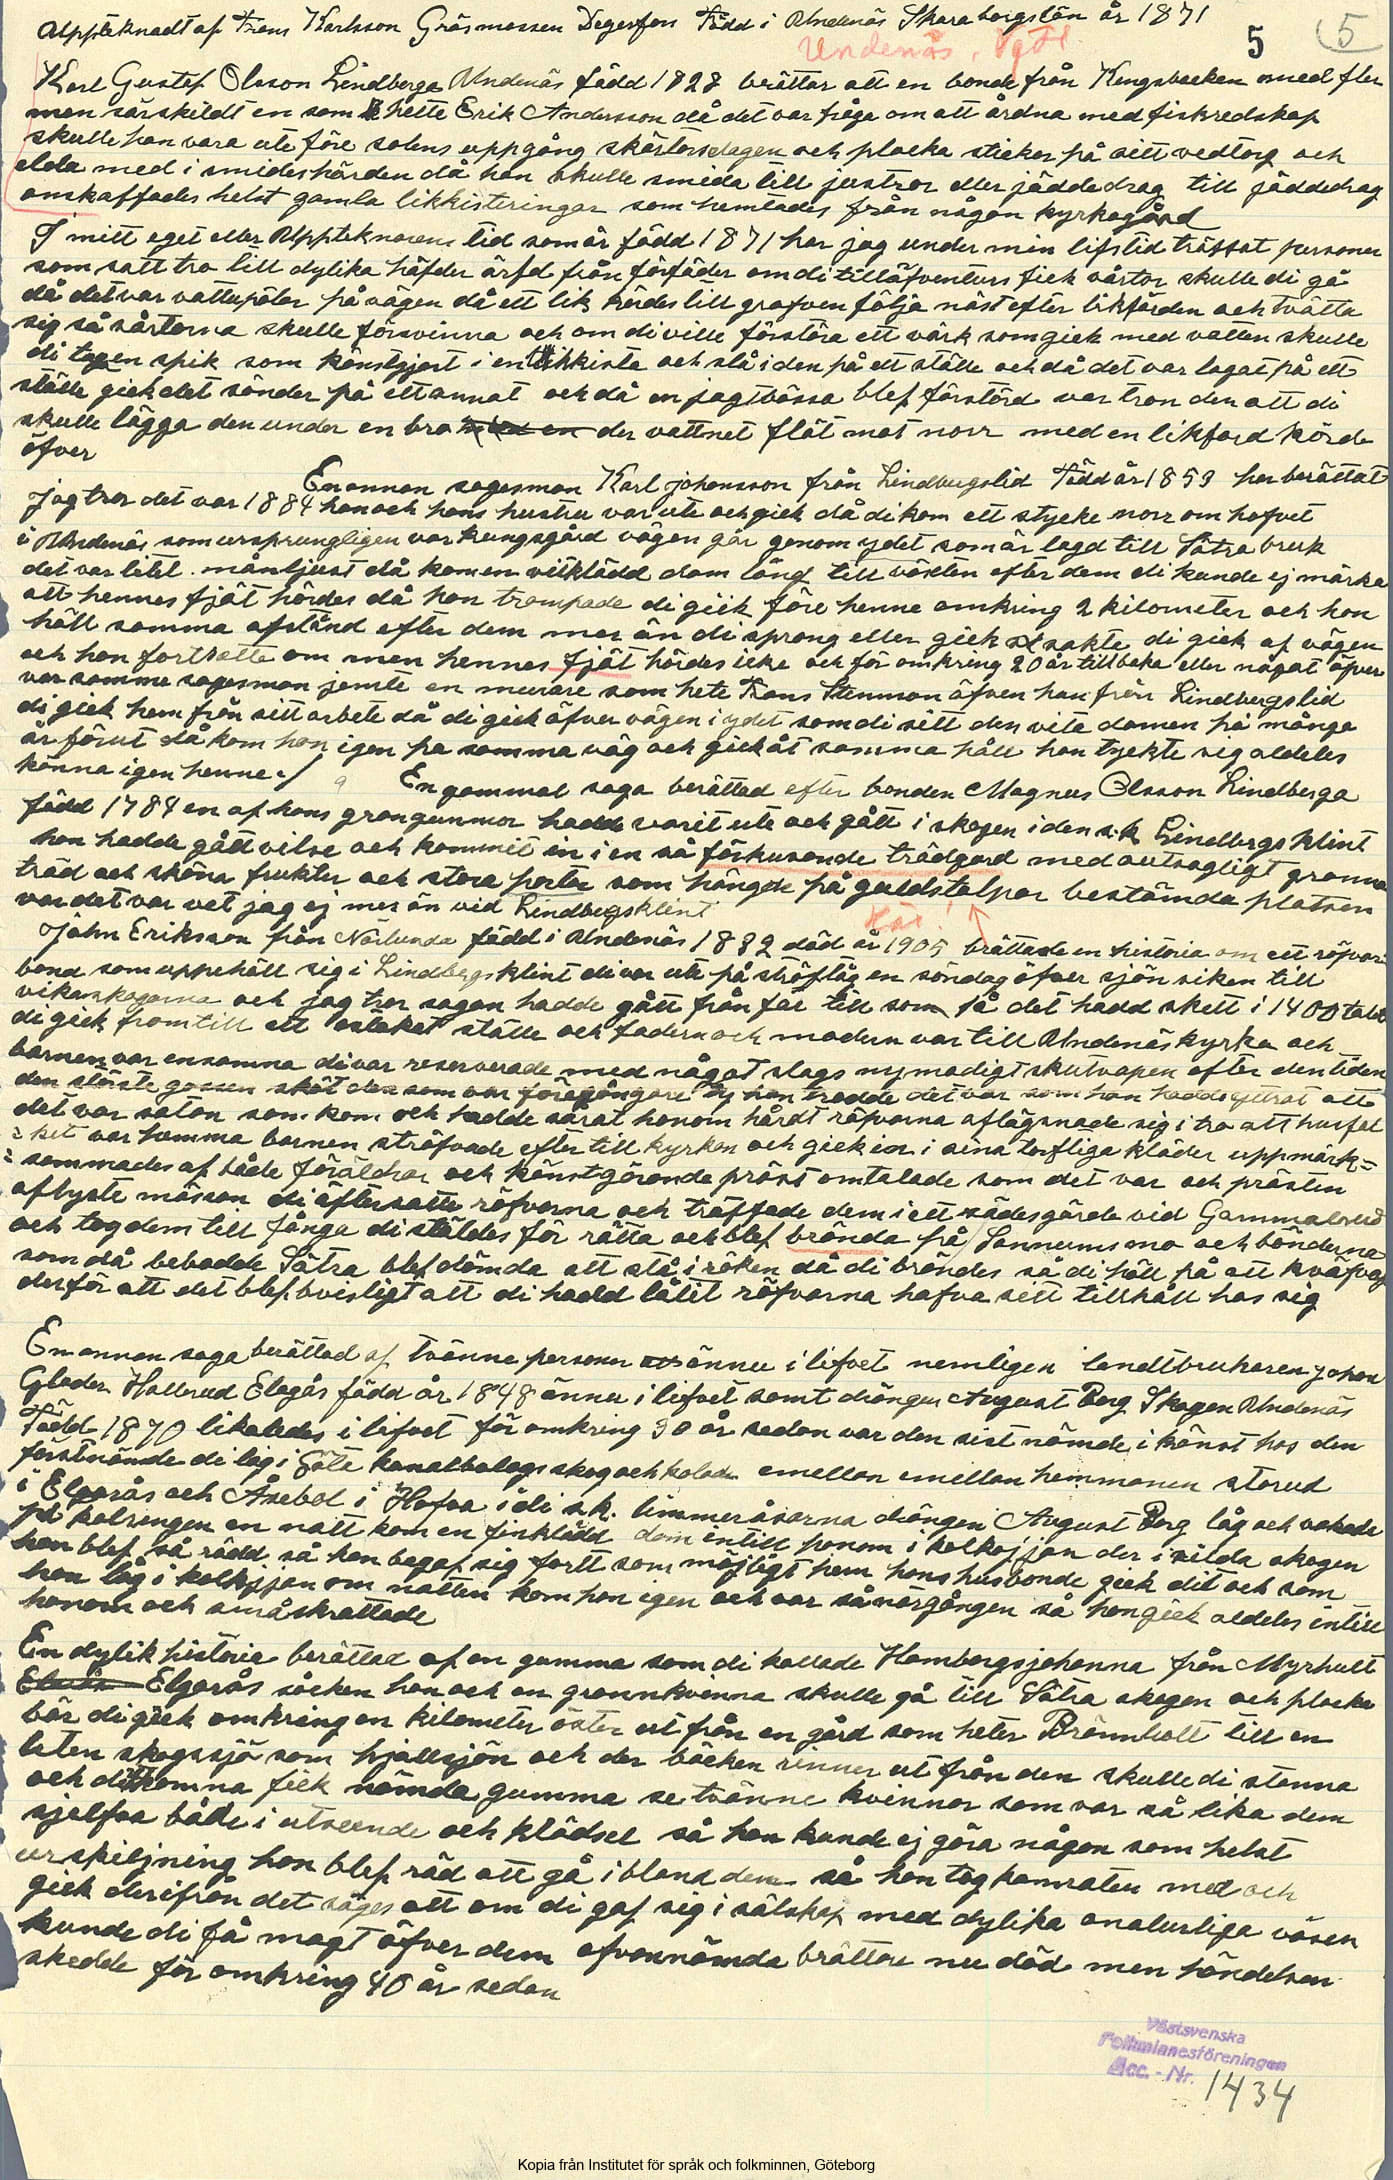 Alppteknadt af Frans Karlsson Gräsmossen Degerfors Född i Undenäs Skaraborgslän år 1871
Undenäs. Vgötl.
5
5
Karl Gustaf Olsson Lindberga Undenäs född 1828 berättar att en bonde från Kungsbacken med fler
men särskildt en som hette Erik Andersson då det var fråga om att årdna med fiskredskap
skulle han vara ute före solens uppgång skärtorsdagen och plocka stickor på sitt vedtorg och
elda med i smideshärden då han skulle smeda till justror eller jäddedrag till jäddedrag
anskaffades helst gamla likkistringar som hemtades från någon kyrkogård
I mitt eget eller Alppteknarens tid som är född 1871 har jag under min lifstid träffat personer
som satt tro till dylika häfder ärfd från förfäder om di tilläfventurs fick vårtor skulle di gå
då det var vattupölar på vägen då ett lik kördes till grafven följa näst efter likfärden och tvätta
sig så vårtorna skulle försvinna och om di ville förstöra ett värk som gick med vatten skulle
di tagen spik som tjänstgjort i en likkista och slå i den på ett ställe och då det var lagat på ett
ställe gick det sönder på ett annat och då en jagtbössa blef förstörd var tron den att di
skulle lägga den under en bro der vattnet flöt mot norr med en likfard körde
öfver
En annan sagesman Karl Johansson från Lindbergslid Född år 1853 har berättat
jag tror det var 1884 han och hans hustru var ute och gick då di kom ett stycke norr om hofvet
i Undenäs som ursprungligen var kungsgård vägen går genom ydet som är lagd till Sätra bruk
det var litet månljust då kom en vitklädd dam lång till växten efter dem di kunde ej märka
att hennes fjät hördes då hon trampade di gick före henne omkring 2 kilometer och hon
höll samma afstånd efter dem mer än di sprang eller gick sakte di gick af vägen
och hon fortsatte om men hennes fjät hördes icke och för omkring 20 år tillbaka eller något öfver
var samme sagesman jemte en murare som hete Frans Stenman äfven han från Lindbergslid
di gick hem från sitt arbete då di gick öfver vägen i ydet som di sitt den vita damen på många
år förut då kom hon igen på samma väg och gick åt samma håll han tyckte sig aldeles
känna igen henne
En gammal saga berättad efter bonden Magnus Olsson Lindberga
född 1784 en af hans grangummor hadde varit ute och gått i skogen i den s.k. Lindbergsklint
hon hadde gått vilse och kommit in i en så förkusande trädgard med outsagligt granna
träd och sköna frukter och stora portar som hängde på guldstolpar bestämda platsen
var det var vet jag ej mer än vid Lindbergsklint
John Eriksson från Närlunda född i Undenäs 1832 död år 1905 brättade en historia om ett röfvar
band som uppehöll sig i Lindbergsklint di var ute på ströftåg en söndag öfver sjön viken till
vikaskogarna och jag tror sagan hadde gått från far till som så det hadd skett i 1400 talet
di gick fram till ett ställe och fadern och modern var till Undenäs kyrka och
barnen var ensamna di var reserverade med något slags nymodigt skutvapen efter den tiden
den störste gossen sköt den som var föregångare ty han trodde det var som han hadde yttrat att
det var satan som kom och hadde sårat honom hårdt röfvarna aflägsnade sig i tro att husfol
ket var hemma barnen ströfvade efter till kyrkan och gick in i sina torftiga kläder uppmärk=
sammades af både föräldrar och tjänstgörande präst omtalade som det var och prästen
aflyste mässan di eftersatte röfvarna och träffade dem i ett sädesgärde vid Gammalrud
och tog dem till fånga di stäldes för rätta och blef brända på Sannums mo och bönderna
som då bebodde Sätra blef dömda att stå i röken då di brändes så di höll på att kväfvas
derför att det blef bevisligt att di hadd låtit röfvarna hafva sitt tillhåll hos sig
En annan saga berättad af tvänne personer ännu i lifvet nemligen landtbrukaren Johan
Glader Hallerud Elgarås född år 1848 ännu i lifvet samt drängen August Berg Skogen Undenäs
Född 1870 likaledes i lifvet för omkring 30 år sedan var den sist nämde i tjänst hos den
förstnämde di låg i Göta kanalbolags skog och kolade emellan emellan hemmanen storud
i Elgarås och Åsebol i Hofva i di s.k. timmeråsarna drängen August Berg låg och vakade
på kolvingen en natt kom en finklädd dam intill honom i kolkojjan der i vilda skogen
han blef så rädd så han begaf sig fortt som möjligt hem hans husbonde gick dit och som
han låg i kolkojjan om natten kom hon igen och var så närgången så hon gick aldeles intill
honom och småskrattade
En dylik historia berättad af en gumma som di kallade Hambergsjohanna från Myrhult
Elgarås såcken hon och en grannkvinna skulle gå till Sätra skogen och plocka
bär di gick omkring en kilometer öster ut från en gård som heter Brännhult till en
liten skogssjö som hjällsjön och der bäcken rinner ut från den skulle di stanna
och ditkomna fick nämda gumma se tvänne kvinnor som var så lika dem
sjelfva både i utseende och klädsel så hon kunde ej göra någon som helst
urskiljning hon blef räd att gå i bland dem så hon tog kamraten med och
gick derifrån det säges att om di gaf sig i sälskap med dylika onaturliga väsen
kunde di få magt öfver dem ofvannämda brättare nu död men händelsen
skedde för omkring 40 år sedan
Västsvenska
Folkminnesföreningen
Acc. - Nr. 1434
Kopia från Institutet för språk och folkminnen, Göteborg